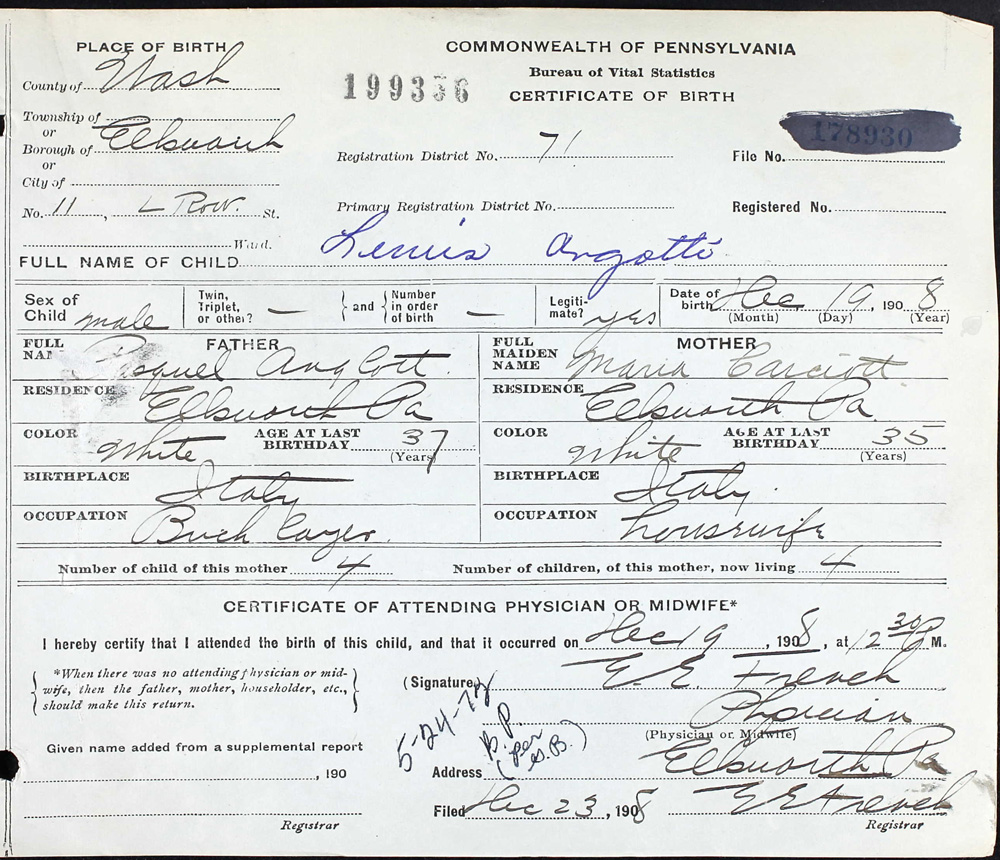 PLACE OF BIRTH
COMMONWEALTH OF PENNSYLVANIA
County of Wash
199336
Bureau of Vital Statistics
CERTIFICATE OF BIRTH
Township of
or
Borough of Ellsworth
or
City of
178930
Registration District No. 71
File No.
No. 11, L Row. St.
Primary Registration District No.
Registered No.
Ward.
FULL NAME OF CHILD Angotti
Sex of Child male
Twin, Triplet, or other? —
and
Number in order of birth —
Legiti-mate? yes
Date of birth Dec 19, 1908
(Month) (Day) (Year)
FATHER
MOTHER
FULL NAM
FULL MAIDEN NAME Maria Carciott
RESIDENCE Ellsworth Pa
RESIDENCE Ellsworth Pa
COLOR White
AGE AT LAST BIRTHDAY 37
(Years)
COLOR White
AGE AT LAST BIRTHDAY 35
(Years)
BIRTHPLACE Italy
BIRTHPLACE Italy.
OCCUPATION
OCCUPATION housewife
Number of child of this mother 4
Number of children, of this mother, now living 4
CERTIFICATE OF ATTENDING PHYSICIAN OR MIDWIFE*
I hereby certify that I attended the birth of this child, and that it occurred on Dec 19, 1908, at 12 30 P M.
*When there was no attending physician or mid-
wife, then the father, mother, householder, etc.,
should make this return.
(Signature) E. E. French
Physician
(Physician or Midwife)
5-24-72
B.P.
(per S.B.)
Given name added from a supplemental report
, 190
Address Ellsworth Pa
Filed Dec 23, 1908 E E French
Registrar
Registrar